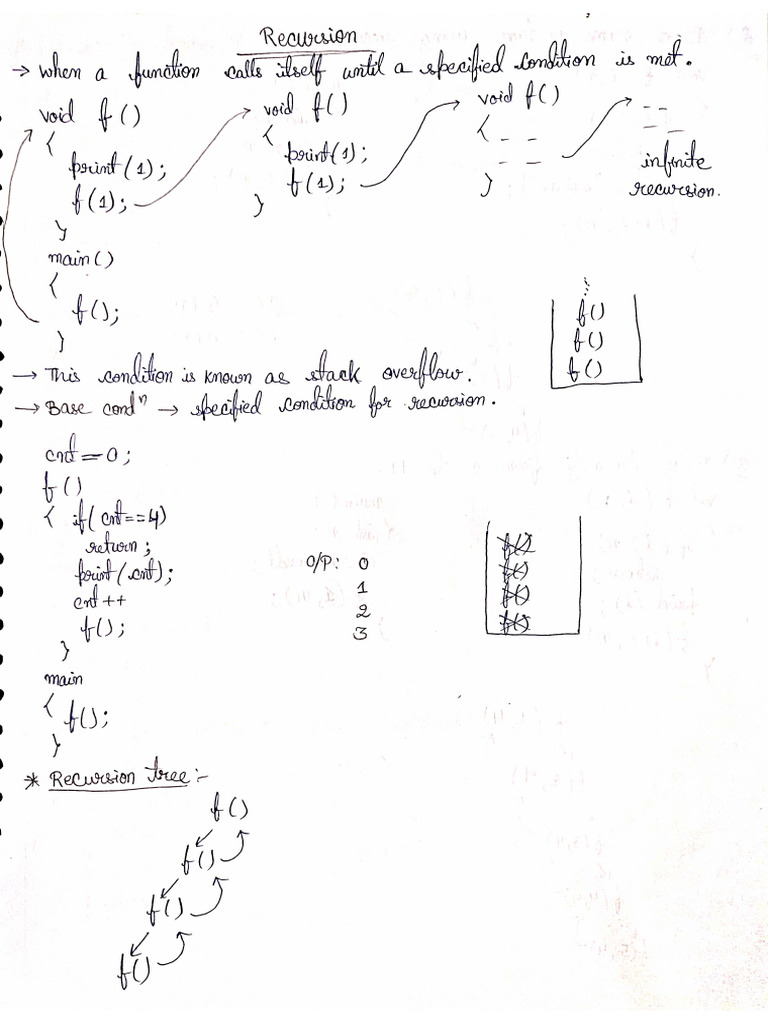 Recursion
→ When a function calls itself until a specified condition is met.
void f()
{
print(1);
f(1);
}
void f()
{
print(1);
f(1);
}
void f()
{ _ _
_ _
}
_ _
_ _
infinite
recursion.
main()
{
f();
}
⋮
f()
f()
f()
→ This condition is known as stack overflow.
→ Base condⁿ → specified condition for recursion.
cnt=0;
f()
{ if(cnt==4)
return;
print(cnt);
cnt++
f();
}
O/P: 0
1
2
3
f()
f()
f()
f()
main
{ f();
}
* Recursion tree:-
f()
f()
f()
f()